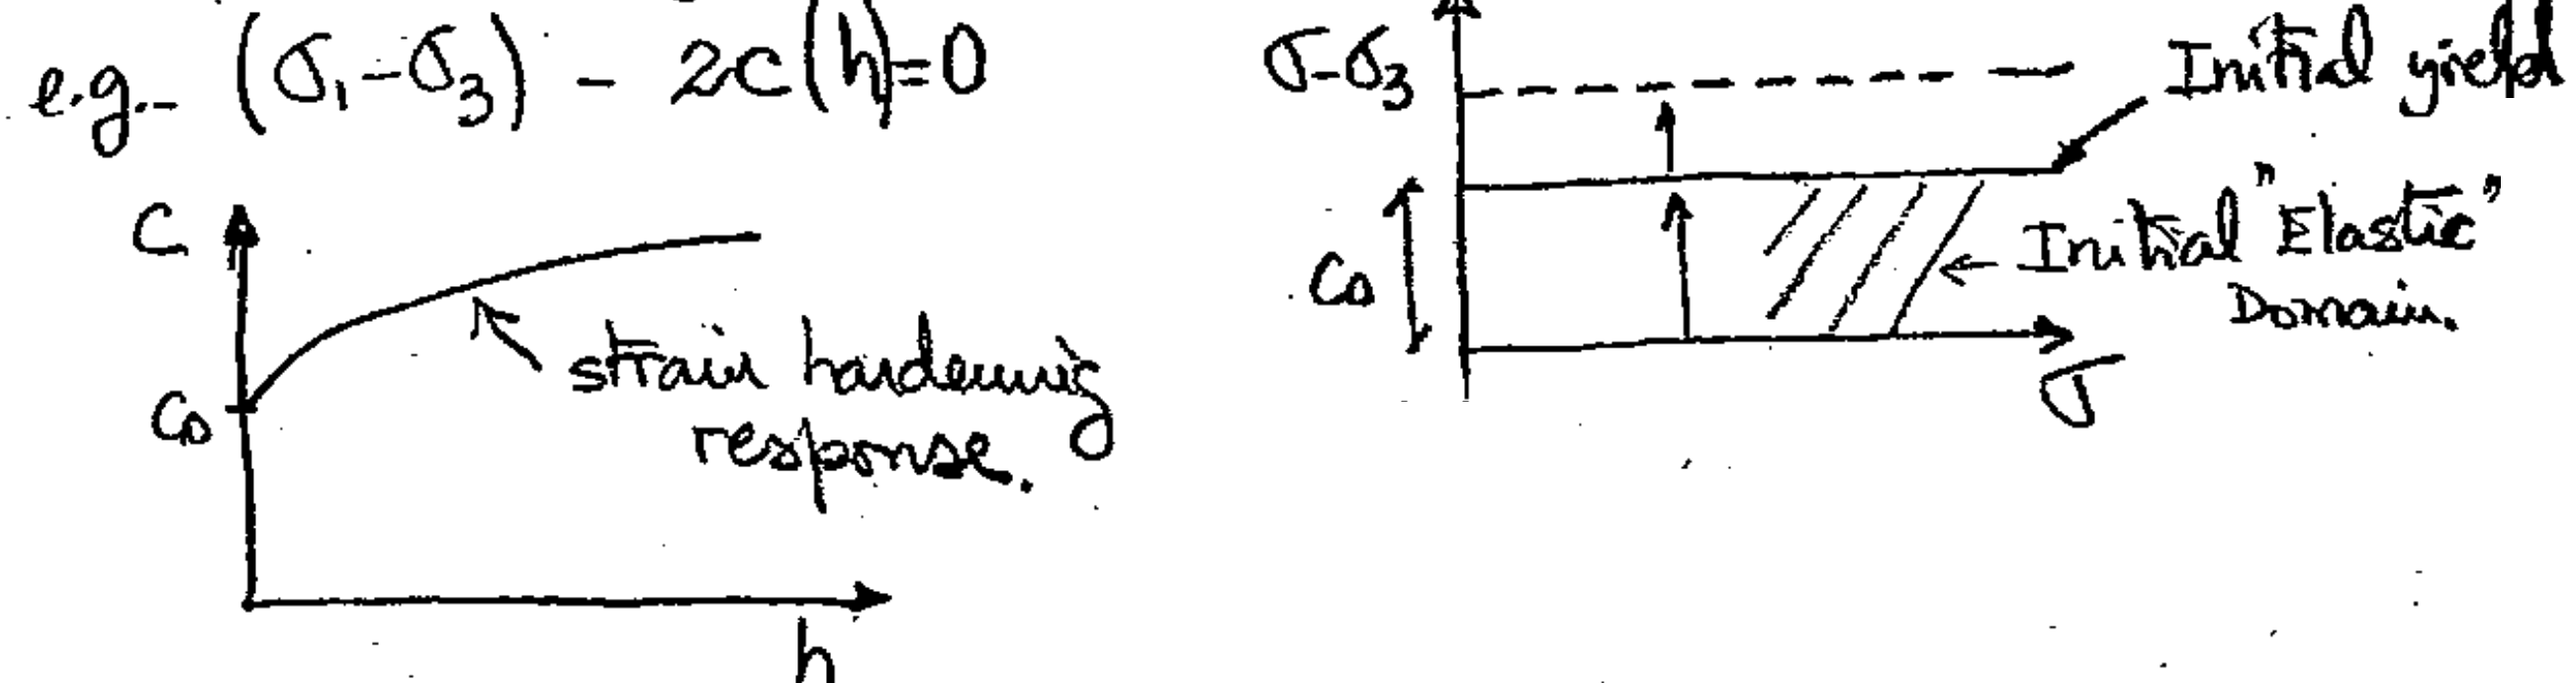 e.g.- (σ₁-σ₃) - 2c(h)=0
C
C₀
strain hardening
response.
h
σ-σ₃
Initial yield
C₀
Initial "Elastic"
Domain.
σ